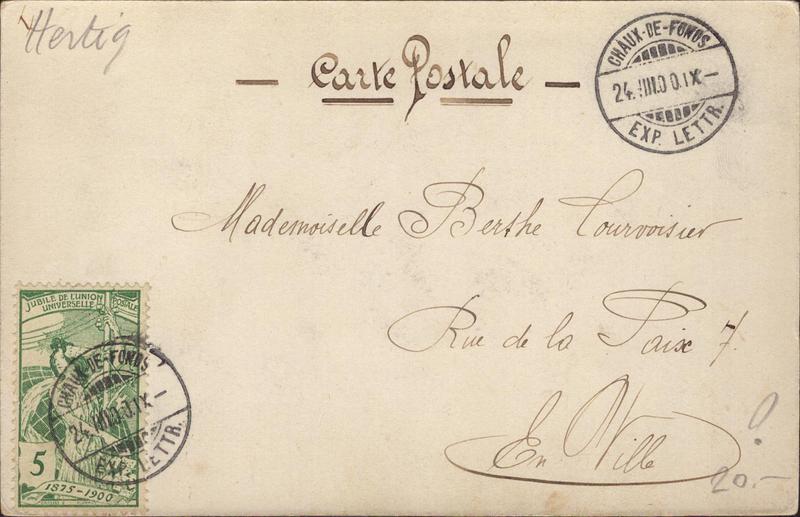 Hertig
CHAUX-DE-FONDS
24.VIII.00.IX-
EXP. LETTR.
— Carte Postale —
Mademoiselle Berthe Courvoisier
Rue de la Paix 7.
En Ville
?
20.-
JUBILÉ DE L'UNION POSTALE
UNIVERSELLE
CHAUX-DE-FONDS
24.VIII.00.IX-
EXP. LETTR.
5
1875-1900